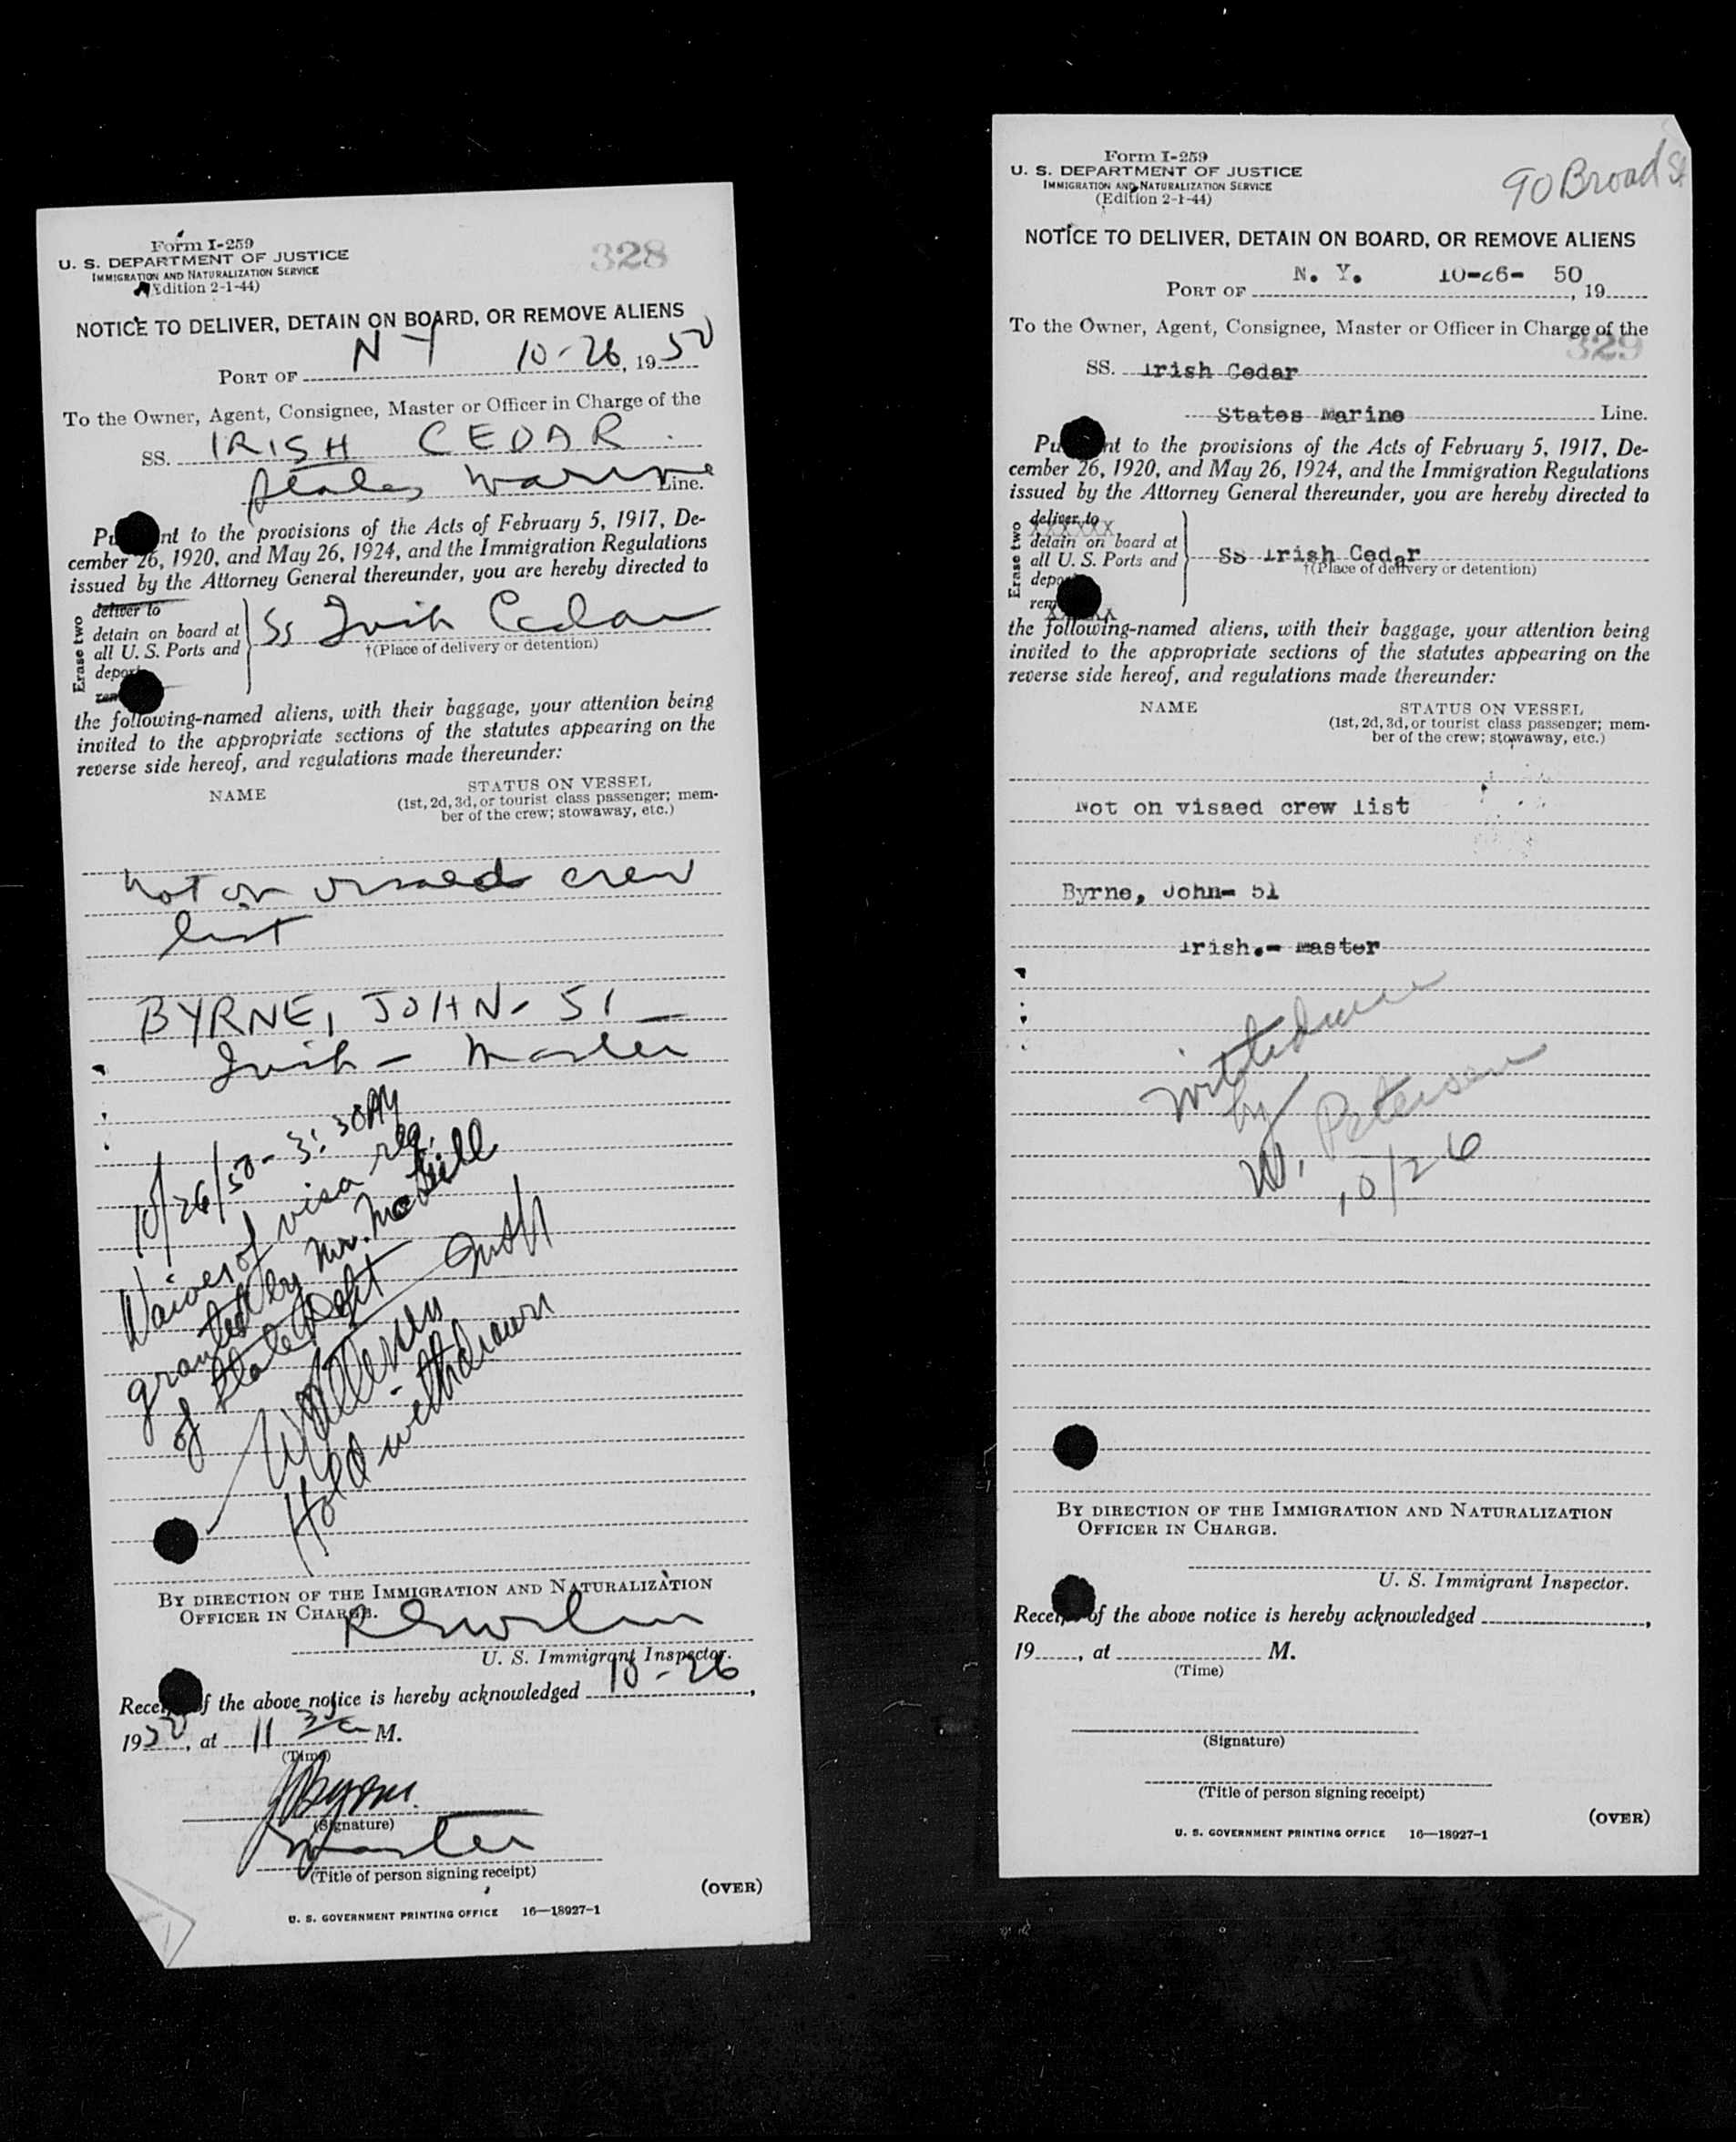 Form I-259
U. S. DEPARTMENT OF JUSTICE
IMMIGRATION AND NATURALIZATION SERVICE
(Edition 2-1-44)
328
NOTICE TO DELIVER, DETAIN ON BOARD, OR REMOVE ALIENS
PORT OF N Y 10-26, 1950
To the Owner, Agent, Consignee, Master or Officer in Charge of the
SS. IRISH CEDAR
States Marine Line.
Pu nt to the provisions of the Acts of February 5, 1917, De-
cember 26, 1920, and May 26, 1924, and the Immigration Regulations
issued by the Attorney General thereunder, you are hereby directed to
Erase two
deliver to
detain on board at
all U. S. Ports and
deport
rem
SS Irish Cedar
†(Place of delivery or detention)
the following-named aliens, with their baggage, your attention being
invited to the appropriate sections of the statutes appearing on the
reverse side hereof, and regulations made thereunder:
NAME
STATUS ON VESSEL
(1st, 2d, 3d, or tourist class passenger; mem-
ber of the crew; stowaway, etc.)
Not on visaed crew
list
BYRNE, JOHN - 51
Irish - Master
10/26/50 - 3:30PM
Waiver of visa req.
granted by Mr. McGill
of State Dept
Hold withdrawn
BY DIRECTION OF THE IMMIGRATION AND NATURALIZATION
OFFICER IN CHARGE.
U. S. Immigrant Inspector.
Recei f the above notice is hereby acknowledged 10-26,
1950, at 11 30 a M.
(Time)
J Byrne.
(Signature)
Master
(Title of person signing receipt)
(OVER)
U. S. GOVERNMENT PRINTING OFFICE 16—18927-1
Form I-259
U. S. DEPARTMENT OF JUSTICE
IMMIGRATION AND NATURALIZATION SERVICE
(Edition 2-1-44)
90 Broad St
NOTICE TO DELIVER, DETAIN ON BOARD, OR REMOVE ALIENS
PORT OF N. Y. 10-26- 50, 19
To the Owner, Agent, Consignee, Master or Officer in Charge of the
329
SS. Irish Cedar
States Marine Line.
Pu nt to the provisions of the Acts of February 5, 1917, De-
cember 26, 1920, and May 26, 1924, and the Immigration Regulations
issued by the Attorney General thereunder, you are hereby directed to
Erase two
deliver to
detain on board at
all U. S. Ports and
depo
rem
SS Irish Cedar
†(Place of delivery or detention)
the following-named aliens, with their baggage, your attention being
invited to the appropriate sections of the statutes appearing on the
reverse side hereof, and regulations made thereunder:
NAME
STATUS ON VESSEL
(1st, 2d, 3d, or tourist class passenger; mem-
ber of the crew; stowaway, etc.)
Not on visaed crew list
Byrne, John- 51
Irish.- Master
Withdrawn
by
W. Petersen
10/26
BY DIRECTION OF THE IMMIGRATION AND NATURALIZATION
OFFICER IN CHARGE.
U. S. Immigrant Inspector.
Recei of the above notice is hereby acknowledged ,
19 , at M.
(Time)
(Signature)
(Title of person signing receipt)
(OVER)
U. S. GOVERNMENT PRINTING OFFICE 16—18927-1